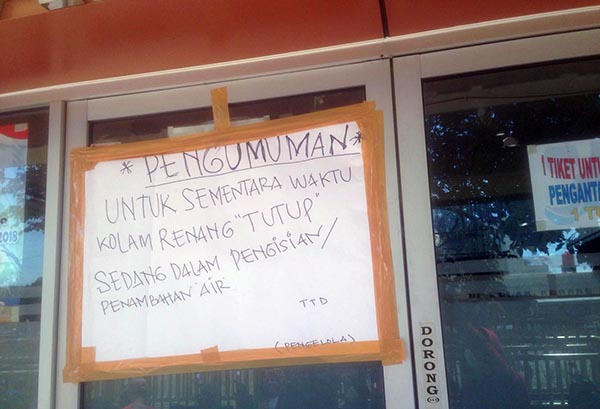 * PENGUMUMAN *
UNTUK SEMENTARA WAKTU
KOLAM RENANG "TUTUP"
SEDANG DALAM PENGISIAN/
PENAMBAHAN AIR
TTD
(PENGELOLA)
1 TIKET UNTU
PENGANTI
1 TU
DORONG
2018